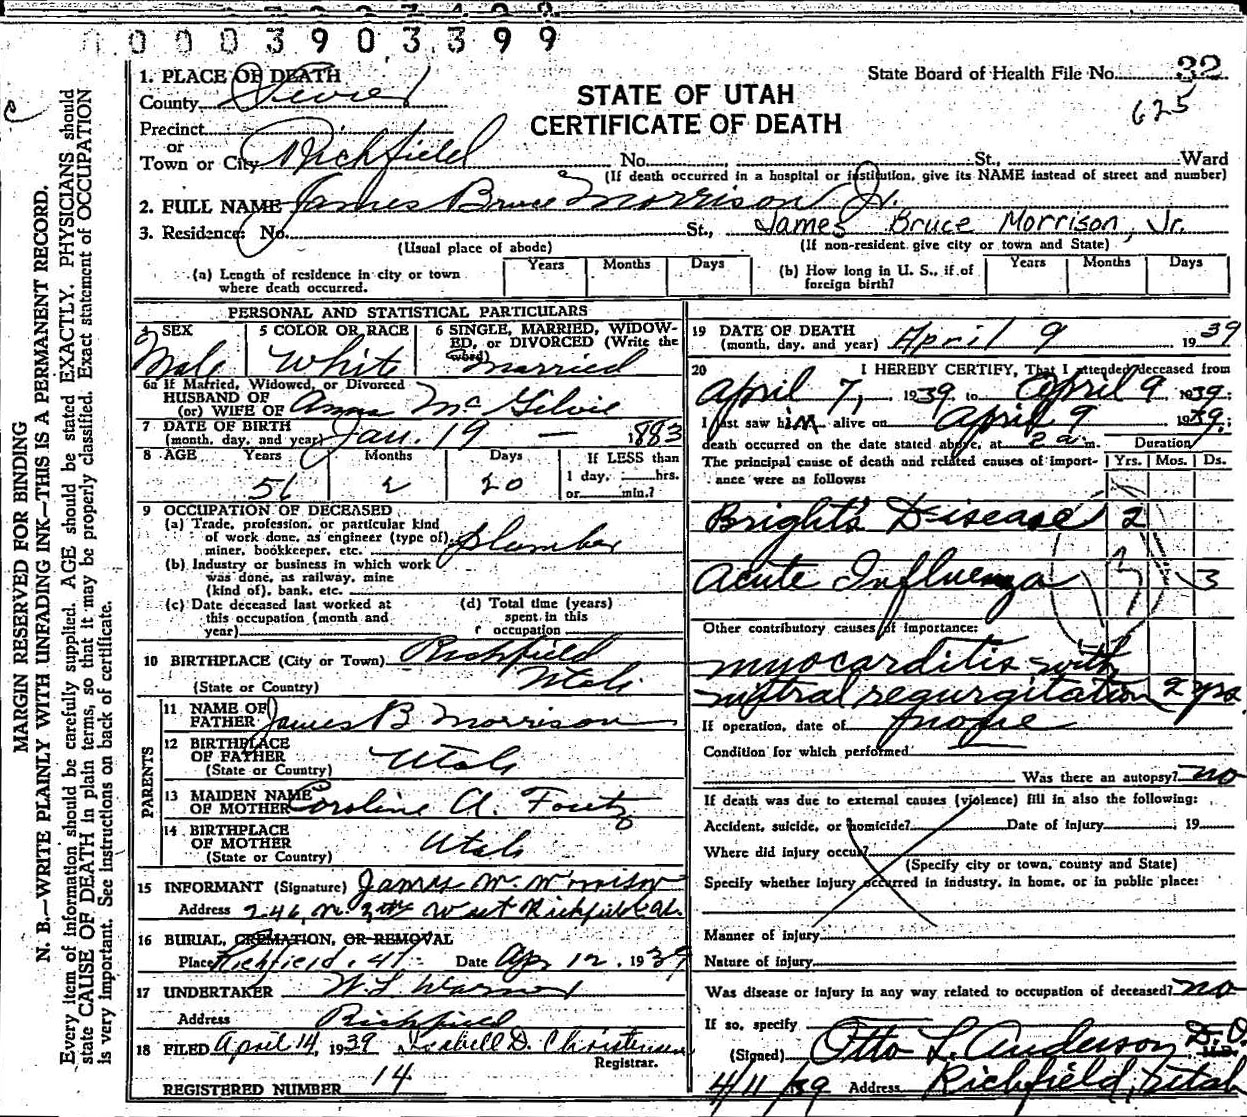 0 0 0 3 9 0 3 3 9 9
1. PLACE OF DEATH
County Sevier
State Board of Health File No. 32
625
STATE OF UTAH
CERTIFICATE OF DEATH
Precinct
or
Town or City Richfield No. St., Ward
(If death occurred in a hospital or institution, give its NAME instead of street and number)
2. FULL NAME James Bruce Morrison Jr.
3. Residence: No. St., James Bruce Morrison, Jr.
(Usual place of abode) (If non-resident give city or town and State)
(a) Length of residence in city or town where death occurred. Years Months Days
(b) How long in U. S., if of foreign birth? Years Months Days
MARGIN RESERVED FOR BINDING
N. B.—WRITE PLAINLY WITH UNFADING INK—THIS IS A PERMANENT RECORD.
Every item of information should be carefully supplied. AGE should be stated EXACTLY. PHYSICIANS should
state CAUSE OF DEATH in plain terms, so that it may be properly classified. Exact statement of OCCUPATION
is very important. See instructions on back of certificate.
PERSONAL AND STATISTICAL PARTICULARS
4 SEX
Male
5 COLOR OR RACE
White
6 SINGLE, MARRIED, WIDOW-
ED, or DIVORCED (Write the
word)
Married
6a If Married, Widowed, or Divorced
HUSBAND OF
(or) WIFE OF Anna McGilvie
7 DATE OF BIRTH
(month, day, and year) Jan. 19 — 1883
8 AGE Years Months Days If LESS than
1 day, hrs.
or min.?
56 2 20
9 OCCUPATION OF DECEASED
(a) Trade, profession, or particular kind
of work done, as engineer (type of),
miner, bookkeeper, etc. Plumber
(b) Industry or business in which work
was done, as railway, mine
(kind of), bank, etc.
(c) Date deceased last worked at
this occupation (month and
year)
(d) Total time (years)
spent in this
occupation
10 BIRTHPLACE (City or Town) Richfield
(State or Country) Utah
PARENTS
11 NAME OF
FATHER James B Morrison
12 BIRTHPLACE
OF FATHER
(State or Country) Utah
13 MAIDEN NAME
OF MOTHER Caroline A. Foutz
14 BIRTHPLACE
OF MOTHER
(State or Country) Utah
15 INFORMANT (Signature) James M. Morrison
Address 246 N. 3rd West Richfield
16 BURIAL, CREMATION, OR REMOVAL
Place Richfield, Ut. Date Apr 12, 1939
17 UNDERTAKER W. L. Warner
Address Richfield
18 FILED April 14, 1939 Isabell D. Christensen
Registrar.
REGISTERED NUMBER 14
19 DATE OF DEATH
(month, day, and year) April 9 1939
20 I HEREBY CERTIFY, That I attended deceased from
April 7, 1939, to April 9 1939
I last saw him alive on April 9 1939;
death occurred on the date stated above, at 2 a.m. Duration
The principal cause of death and related causes of import-
ance were as follows: Yrs. Mos. Ds.
Bright's Disease 2
Acute Influenza 3
Other contributory causes of importance:
myocarditis with
mitral regurgitation 2 yrs.
If operation, date of none
Condition for which performed
Was there an autopsy? no
If death was due to external causes (violence) fill in also the following:
Accident, suicide, or homicide? Date of injury , 19
Where did injury occur?
(Specify city or town, county and State)
Specify whether injury occurred in industry, in home, or in public place:
Manner of injury
Nature of injury
Was disease or injury in any way related to occupation of deceased? no
If so, specify
(Signed) Otto L. Anderson D.O.
4/11/39 Address Richfield, Utah